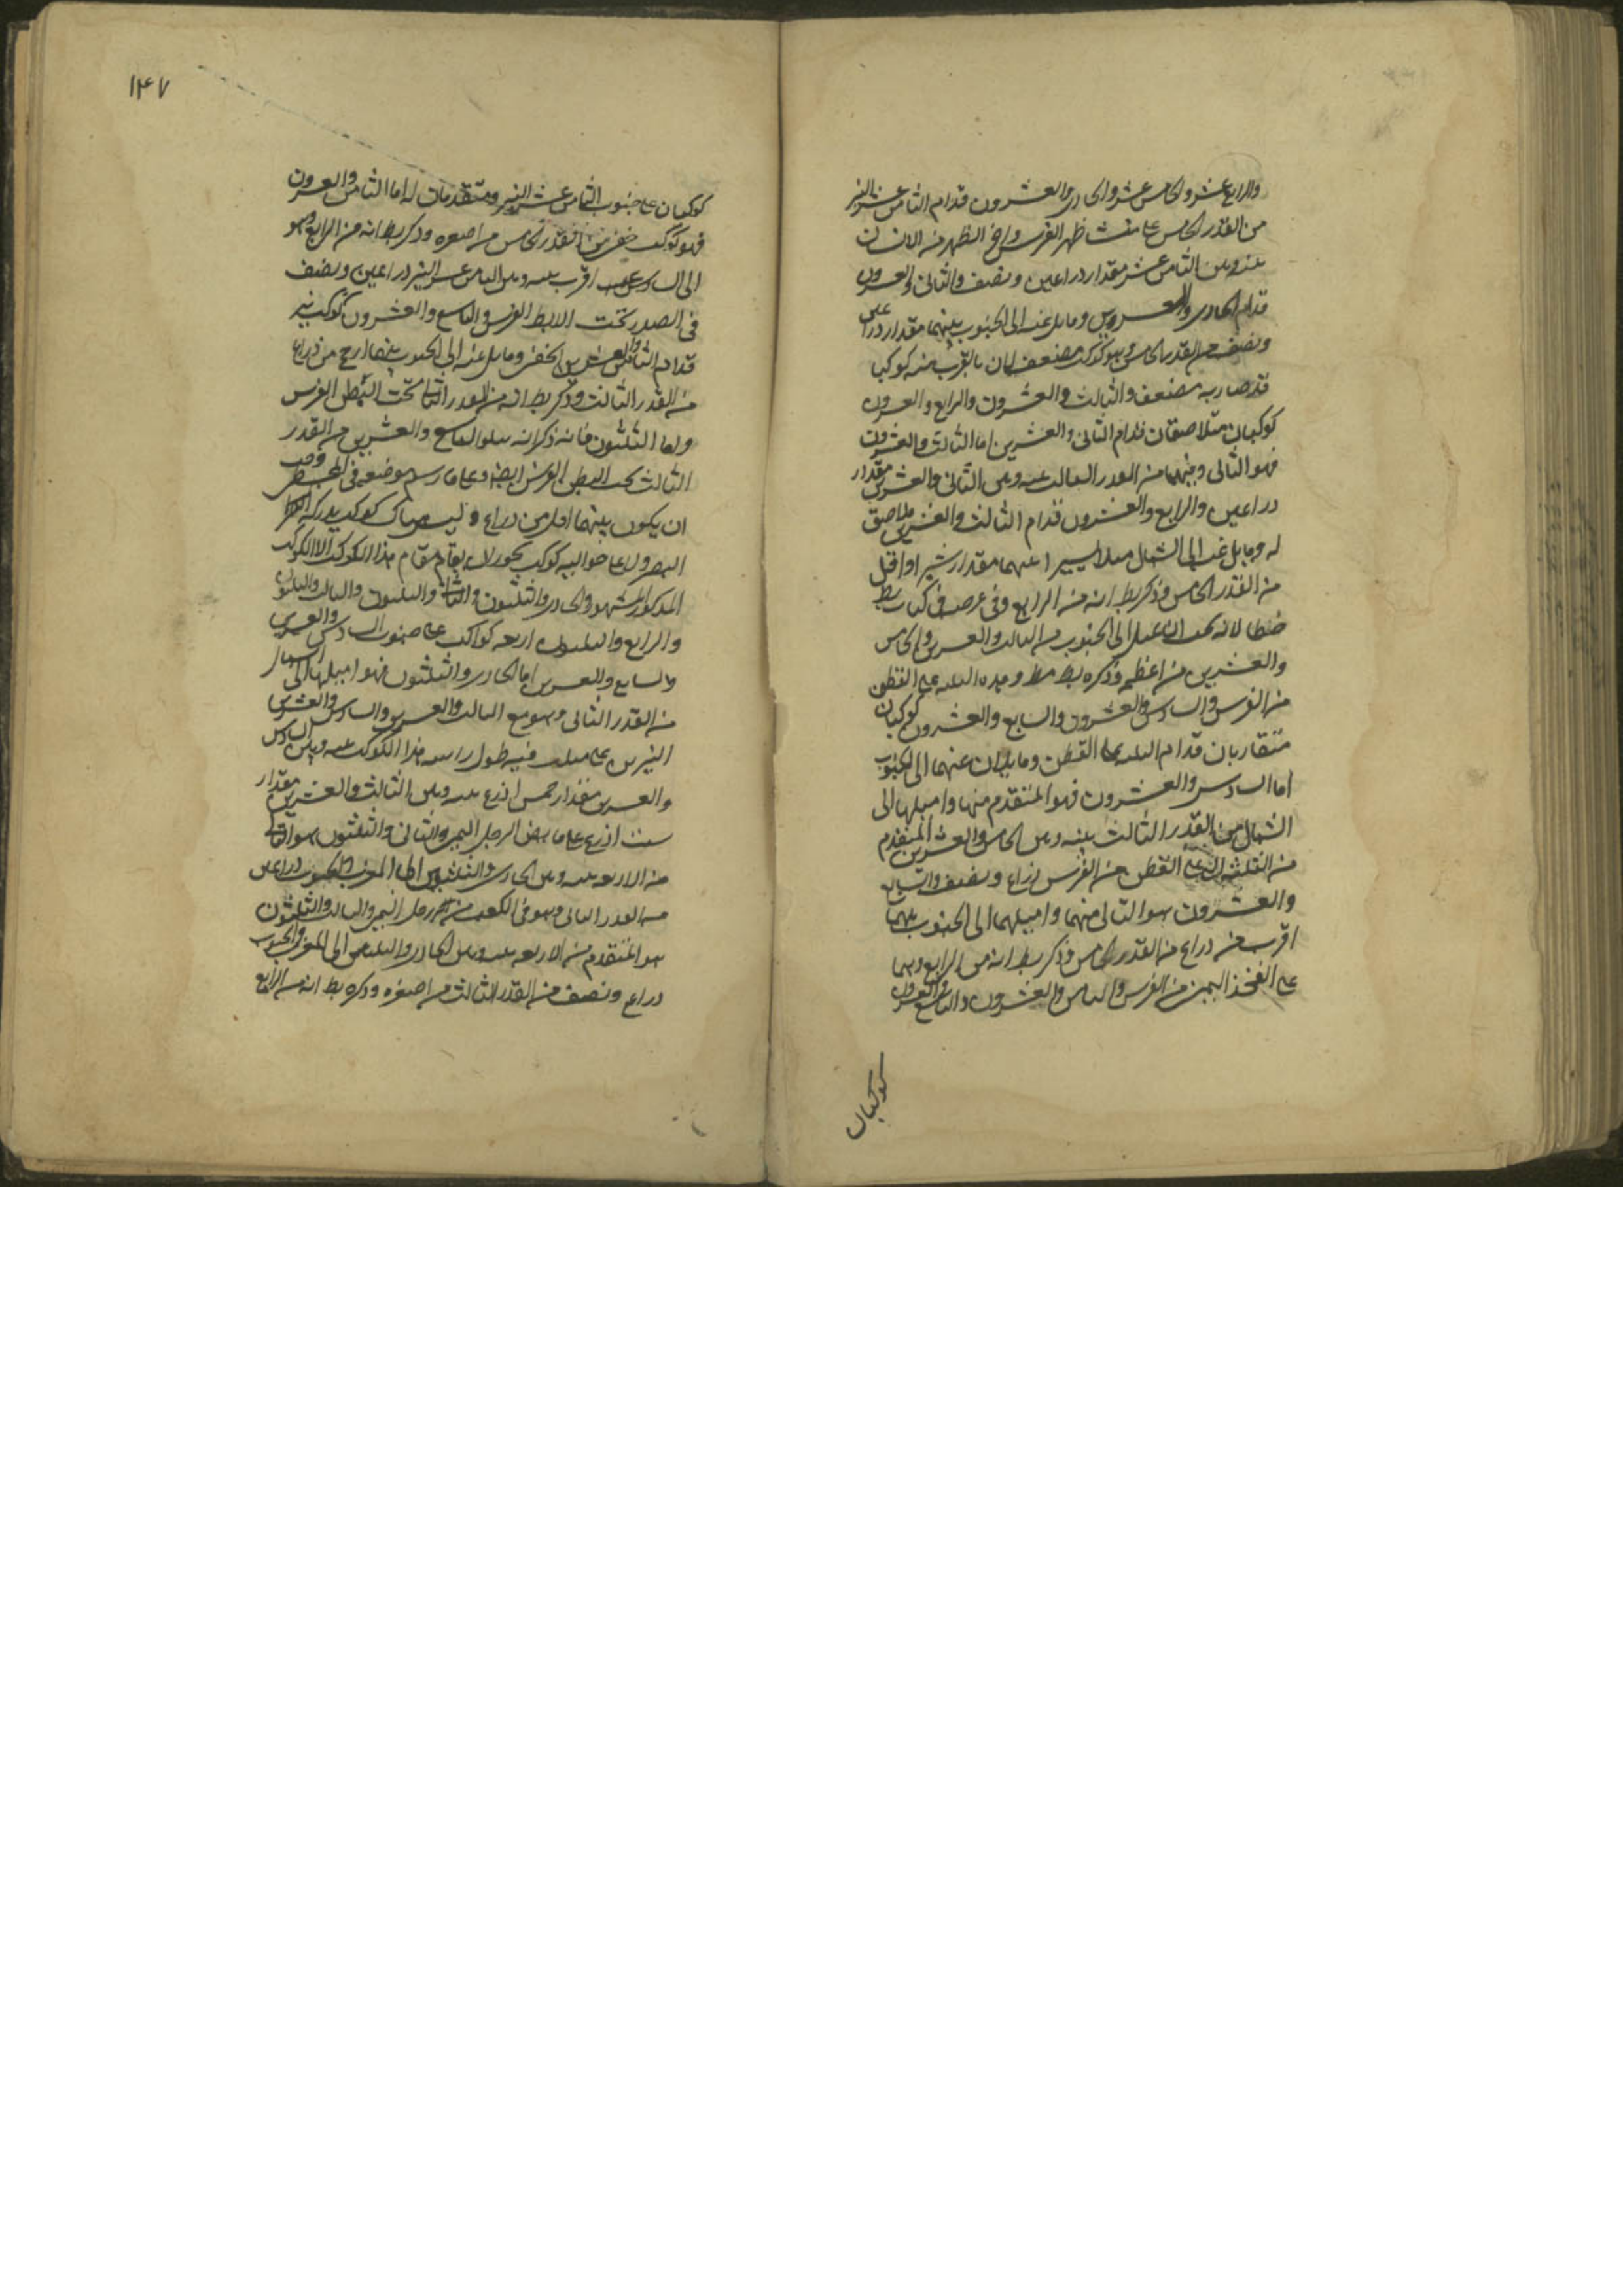 والرابع عشر والخامس عشر والحادى والعشرون قدام الثامن عشر النير
من القدر الخامس على منشا ظهر الفرس واخر الظهر من الانسان
بينه وبين الثامن عشر مقدار ذراعين ونصف والثانى والعشرون
قدام الحادى والعشرين ومايل عنه الى الجنوب بينهما مقدار ذراعين
ونصف من القدر الخامس وهو كوكب مضعف لان بالقرب منه كوكبا
قد صار به مضعف والثالث والعشرون والرابع والعشرون
كوكبان متلاصقان قدام الثانى والعشرين اما الثالث والعشرون
فهو التالى منهما من القدر الثالث بينه وبين الثانى والعشرين مقدار
ذراعين والرابع والعشرون قدام الثالث والعشرين ملاصق
له ومايل عنه الى الشمال ميلا يسيرا بينهما مقدار شبر او اقل
من القدر الخامس وذكر بط انه من الرابع وفى عرضه فى كتاب بط
خطا لانه يميل الى الجنوب من الثالث والعشرين والخامس
والعشرين من اعظمه وذكره بط على القطن
من الفرس والسادس والعشرون والسابع والعشرون كوكبان
متقاربان قدام الثلثه على القطن ومايلان عنهما الى الجنوب
اما السادس والعشرون فهو المتقدم منهما واميلهما الى
الشمال من القدر الثالث بينه وبين الخامس والعشرين المتقدم
من الثلثه التى على القطن من الفرس ذراع ونصف والسابع
والعشرون هو التالى منهما واميلهما الى الجنوب بينهما
اقرب من ذراع من القدر الخامس وذكر بط انه من الرابع وهما
على الفخذ اليمين من الفرس والثامن والعشرون والتاسع والعشرون
كوكبان
١٤٧
كوكبان على جنوب الثامن عشر النير ومتقدمان له اما الثامن والعشرون
فهو كوكب خفى من القدر الخامس من اصغره وذكر بط انه من الرابع وهو
الى السادس عشر اقرب بينه وبين الثامن عشر النير ذراعين ونصف
فى الصدر تحت الابط الفرس والتاسع والعشرون كوكب نير
قدام الثامن والعشرين الخفى ومايل عنه الى الجنوب بينهما ارجح من ذراع
من القدر الثالث وذكر بط انه من القدر الثانى تحت البطن الفرس
واما الثلثون فانه ذكر انه يتلو التاسع والعشرين من القدر
الثالث تحت البطن الفرس ايضا وعلى ما رسم موضعه فى المجسطى وجب
ان يكون بينهما اقل من ذراع وليس هناك كوكب يدركه
البصر ولا على حواليه كوكب يجوز ان يقام مقام هذا الكوكب الا الكوكب
المذكور المشهور والحادى والثلثون والثانى والثلثون والثالث والثلثون
والرابع والثلثون اربعه كواكب على جنوب السادس والعشرين
والسابع والعشرين اما الحادى والثلثون فهو اميلها الى الشمال
من القدر الثانى وهو مع الثالث والعشرين والسادس والعشرين
النيرين على مثلث فيه طول راسه هذا الكوكب بينه وبين السادس
والعشرين مقدار خمس اذرع بينه وبين الثالث والعشرين مقدار
ست اذرع على مابض الرجل اليمين والثانى والثلثون هو التالى
من الاربعه بينه وبين الحادى والثلثين الى المغرب والجنوب ذراعين
من القدر الثانى وهو فى الكعب من رجل اليمين والثالث والثلثون
هو المتقدم من الاربعه بينه وبين الحادى والثلثين الى المغرب والجنوب
ذراع ونصف من القدر الثالث من اصغره وذكره بط انه من الرابع